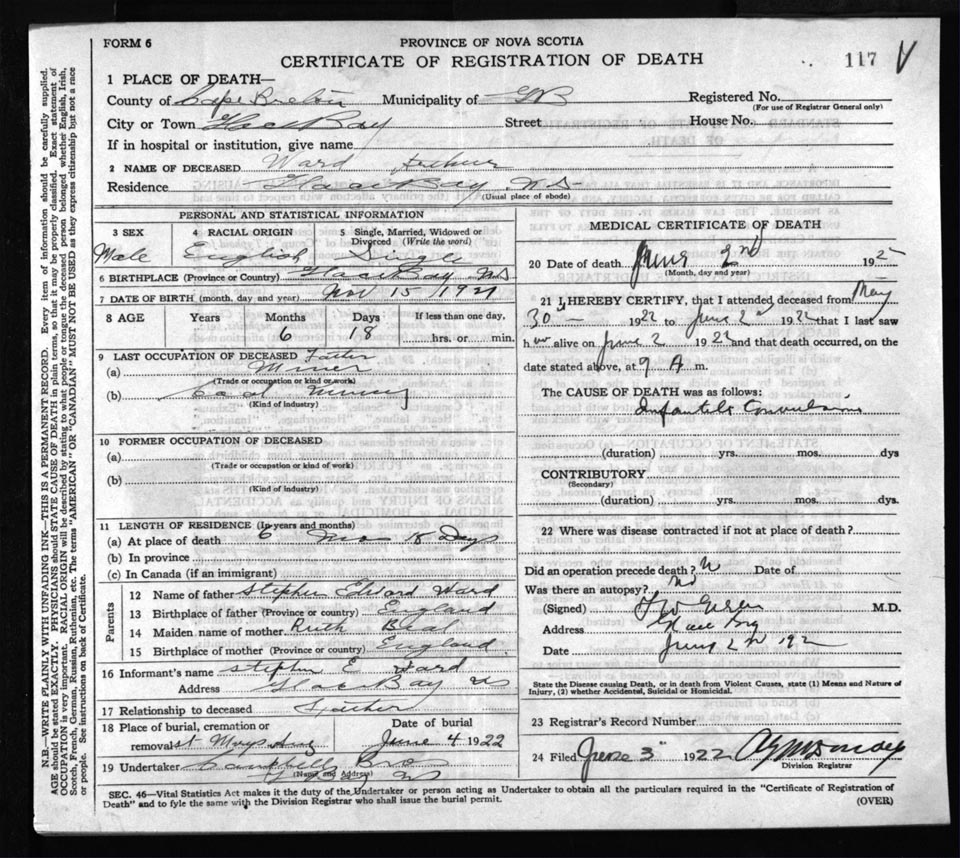 FORM 6
PROVINCE OF NOVA SCOTIA
CERTIFICATE OF REGISTRATION OF DEATH
117 V
1 PLACE OF DEATH—
County of Cape Breton Municipality of GB Registered No.
(For use of Registrar General only)
City or Town Glace Bay Street House No.
If in hospital or institution, give name
2 NAME OF DECEASED Ward Arthur
Residence Glace Bay NS
(Usual place of abode)
PERSONAL AND STATISTICAL INFORMATION
3 SEX 4 RACIAL ORIGIN 5 Single, Married, Widowed or Divorced (Write the word)
Male English Single
6 BIRTHPLACE (Province or Country) Glace Bay NS
7 DATE OF BIRTH (month, day and year) Nov 15/1921
8 AGE Years Months Days If less than one day,
6 18 hrs. or min.
9 LAST OCCUPATION OF DECEASED Father
(a) Miner
(Trade or occupation or kind of work)
(b) Coal Mining
(Kind of industry)
10 FORMER OCCUPATION OF DECEASED
(a)
(Trade or occupation or kind of work)
(b)
(Kind of industry)
11 LENGTH OF RESIDENCE (In years and months)
(a) At place of death 6 Mos 18 Days
(b) In province
(c) In Canada (if an immigrant)
Parents
12 Name of father Stephen Edward Ward
13 Birthplace of father (Province or country) England
14 Maiden name of mother Ruth Beal
15 Birthplace of mother (Province or country) England
16 Informant's name Stephen E Ward
Address Glace Bay NS
17 Relationship to deceased Father
18 Place of burial, cremation or removal St Marys Ang
Date of burial June 4 1922
19 Undertaker Campbell Bro
(Name and Address) NS
MEDICAL CERTIFICATE OF DEATH
20 Date of death June 2nd 192
(Month, day and year)
21 I HEREBY CERTIFY, that I attended deceased from May
30th 1922 to June 2nd 1922 that I last saw
h im alive on June 2 1922 and that death occurred, on the
date stated above, at 9 A m.
The CAUSE OF DEATH was as follows:
Infantile Convulsions
(duration) yrs. mos. dys
CONTRIBUTORY
(Secondary)
(duration) yrs. mos. dys.
22 Where was disease contracted if not at place of death?
Did an operation precede death? N Date of
Was there an autopsy? No
(Signed) M.D.
Address Glace Bay
Date June 2nd 192
State the Disease causing Death, or in death from Violent Causes, state (1) Means and Nature of
Injury, (2) whether Accidental, Suicidal or Homicidal.
23 Registrar's Record Number
24 Filed June 3rd 1922
Division Registrar
SEC. 46—Vital Statistics Act makes it the duty of the Undertaker or person acting as Undertaker to obtain all the particulars required in the "Certificate of Registration of
Death" and to fyle the same with the Division Registrar who shall issue the burial permit.
(OVER)
N.B.—WRITE PLAINLY WITH UNFADING INK—THIS IS A PERMANENT RECORD. Every item of information should be carefully supplied.
AGE should be stated EXACTLY. PHYSICIANS should STATE CAUSE OF DEATH in plain terms, so that it may be properly classified. Exact statement of
OCCUPATION is very important. RACIAL ORIGIN will be described by stating to what people or tongue the deceased person belonged whether English, Irish,
Scotch, French, German, Russian, Ruthenian, etc. The terms "AMERICAN" OR "CANADIAN" MUST NOT BE USED as they express citizenship but not a race
or people. See instructions on back of Certificate.